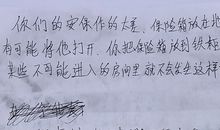 你们的安保作的太差、保险箱放在地
有可能将他打开、你把保险箱放到铁柜
某些不可能进入的房间里就不会发生这样